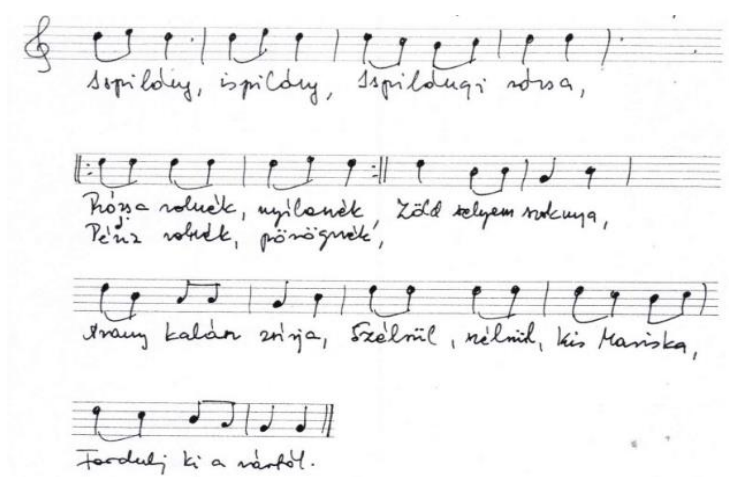 Ispilány, ispilány, Ispilángi rózsa,
Rózsa volnék, nyílanék, Zöld selyem szoknya,
Pénz volnék, pörögnék,
Arany kalán zsinja, Szélrül, szélrül, kis Mariska,
Fordulj ki a